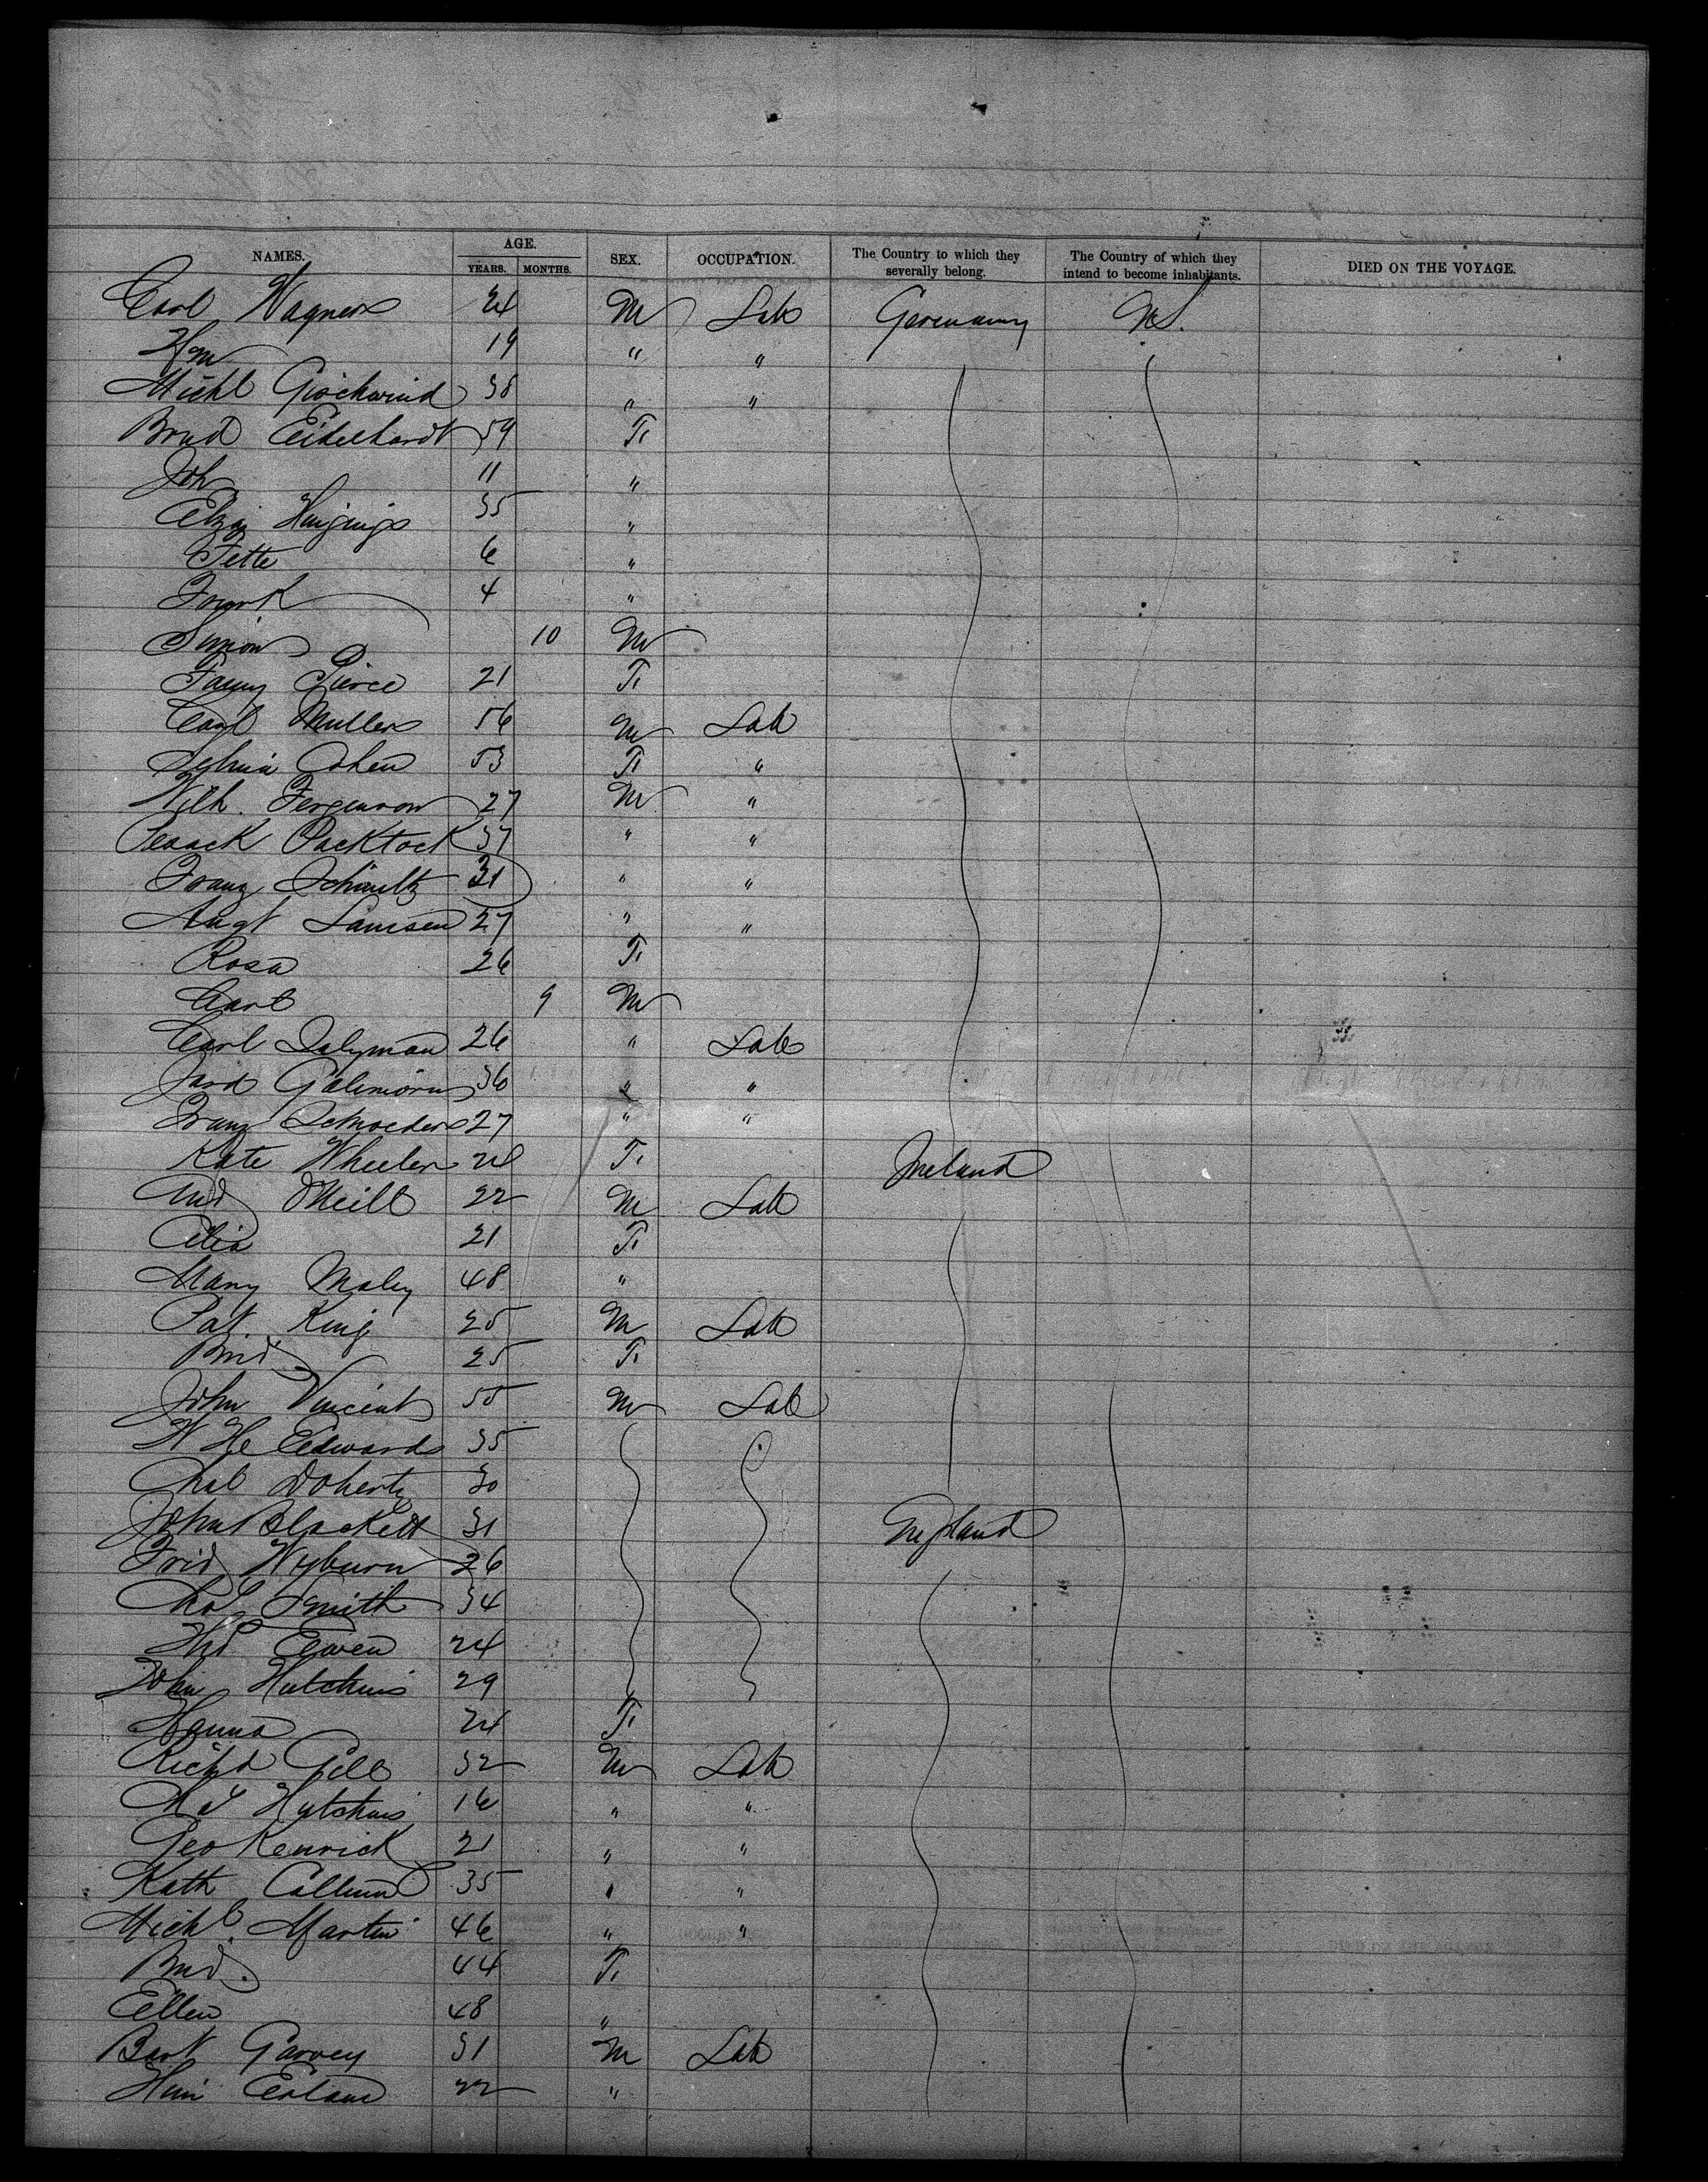 NAMES. AGE. YEARS. MONTHS. SEX. OCCUPATION. The Country to which they severally belong. The Country of which they intend to become inhabitants. DIED ON THE VOYAGE.
Carl Wagner 24 M Lab Germany US.
Hm 19 " "
Michl Gischwind 38 " "
Brnd Eidelhardt 59 F.
Joh 11 "
35 "
Fette 6 "
Frank 4 "
Simon 10 M
Fanny Pierce 21 F.
Carl Muller 56 M Lab
Cohen 53 F. "
Wilh. Ferguson 27 M "
Packtock 37 " "
Franz Schaultz 31 " "
Augt Lamsen 27 " "
Rosa 26 F.
Carl 9 M
Carl Salyman 26 " Lab
36 " "
Franz Schroeder 27 " "
Kate Wheeler 24 F. Ireland
And O'Neill 22 M Lab
Celia 21 F.
Mary Maley 48 "
Pat. King 25 M Lab
Brid 25 F.
John Vincent 55 M Lab
W He Edwards 35
Chas Doherty 30
John Blackett 31 England
Fred Wyburn 26
Chas Smith 34
Thos Eewen 24
John Hutchins 29
Hanna 24 F.
Richd Gill 32 M Lab
Hutchins 16 " "
Geo Kenrick 21 " "
Kath Callum 35 " "
Michl. Martin 46 " "
Brid. 44 F.
Ellen 48 "
Bart Garvey 31 M Lab
22 "